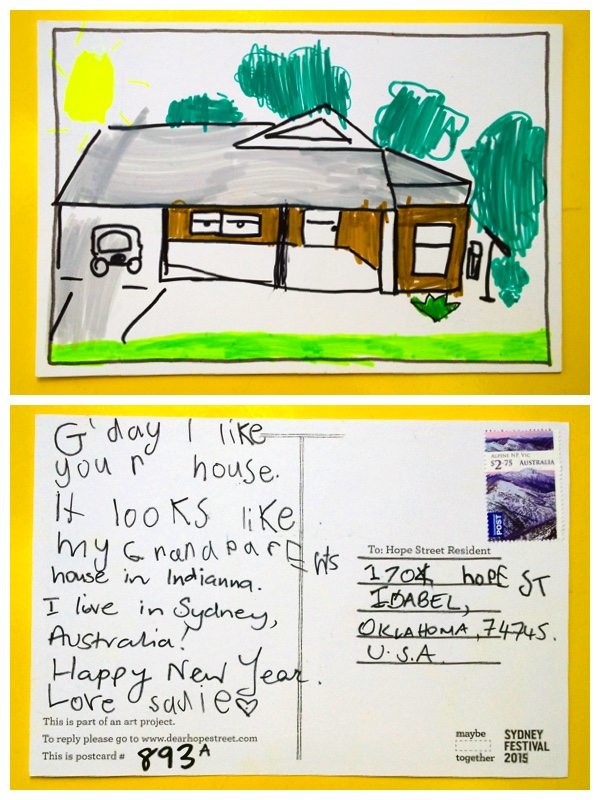 G'day I like
your house.
It looks like
my Grandparents
house in Indianna.
I live in Sydney,
Australia!
Happy New Year.
Love sadie♡
This is part of an art project.
To reply please go to www.dearhopestreet.com
This is postcard # 893A
ALPINE NP VIC
$2.75 AUSTRALIA
POST
To: Hope Street Resident
1704 HOPE ST
IDABEL,
OKLAHOMA, 74745.
U.S.A.
maybe
together
SYDNEY
FESTIVAL
2015